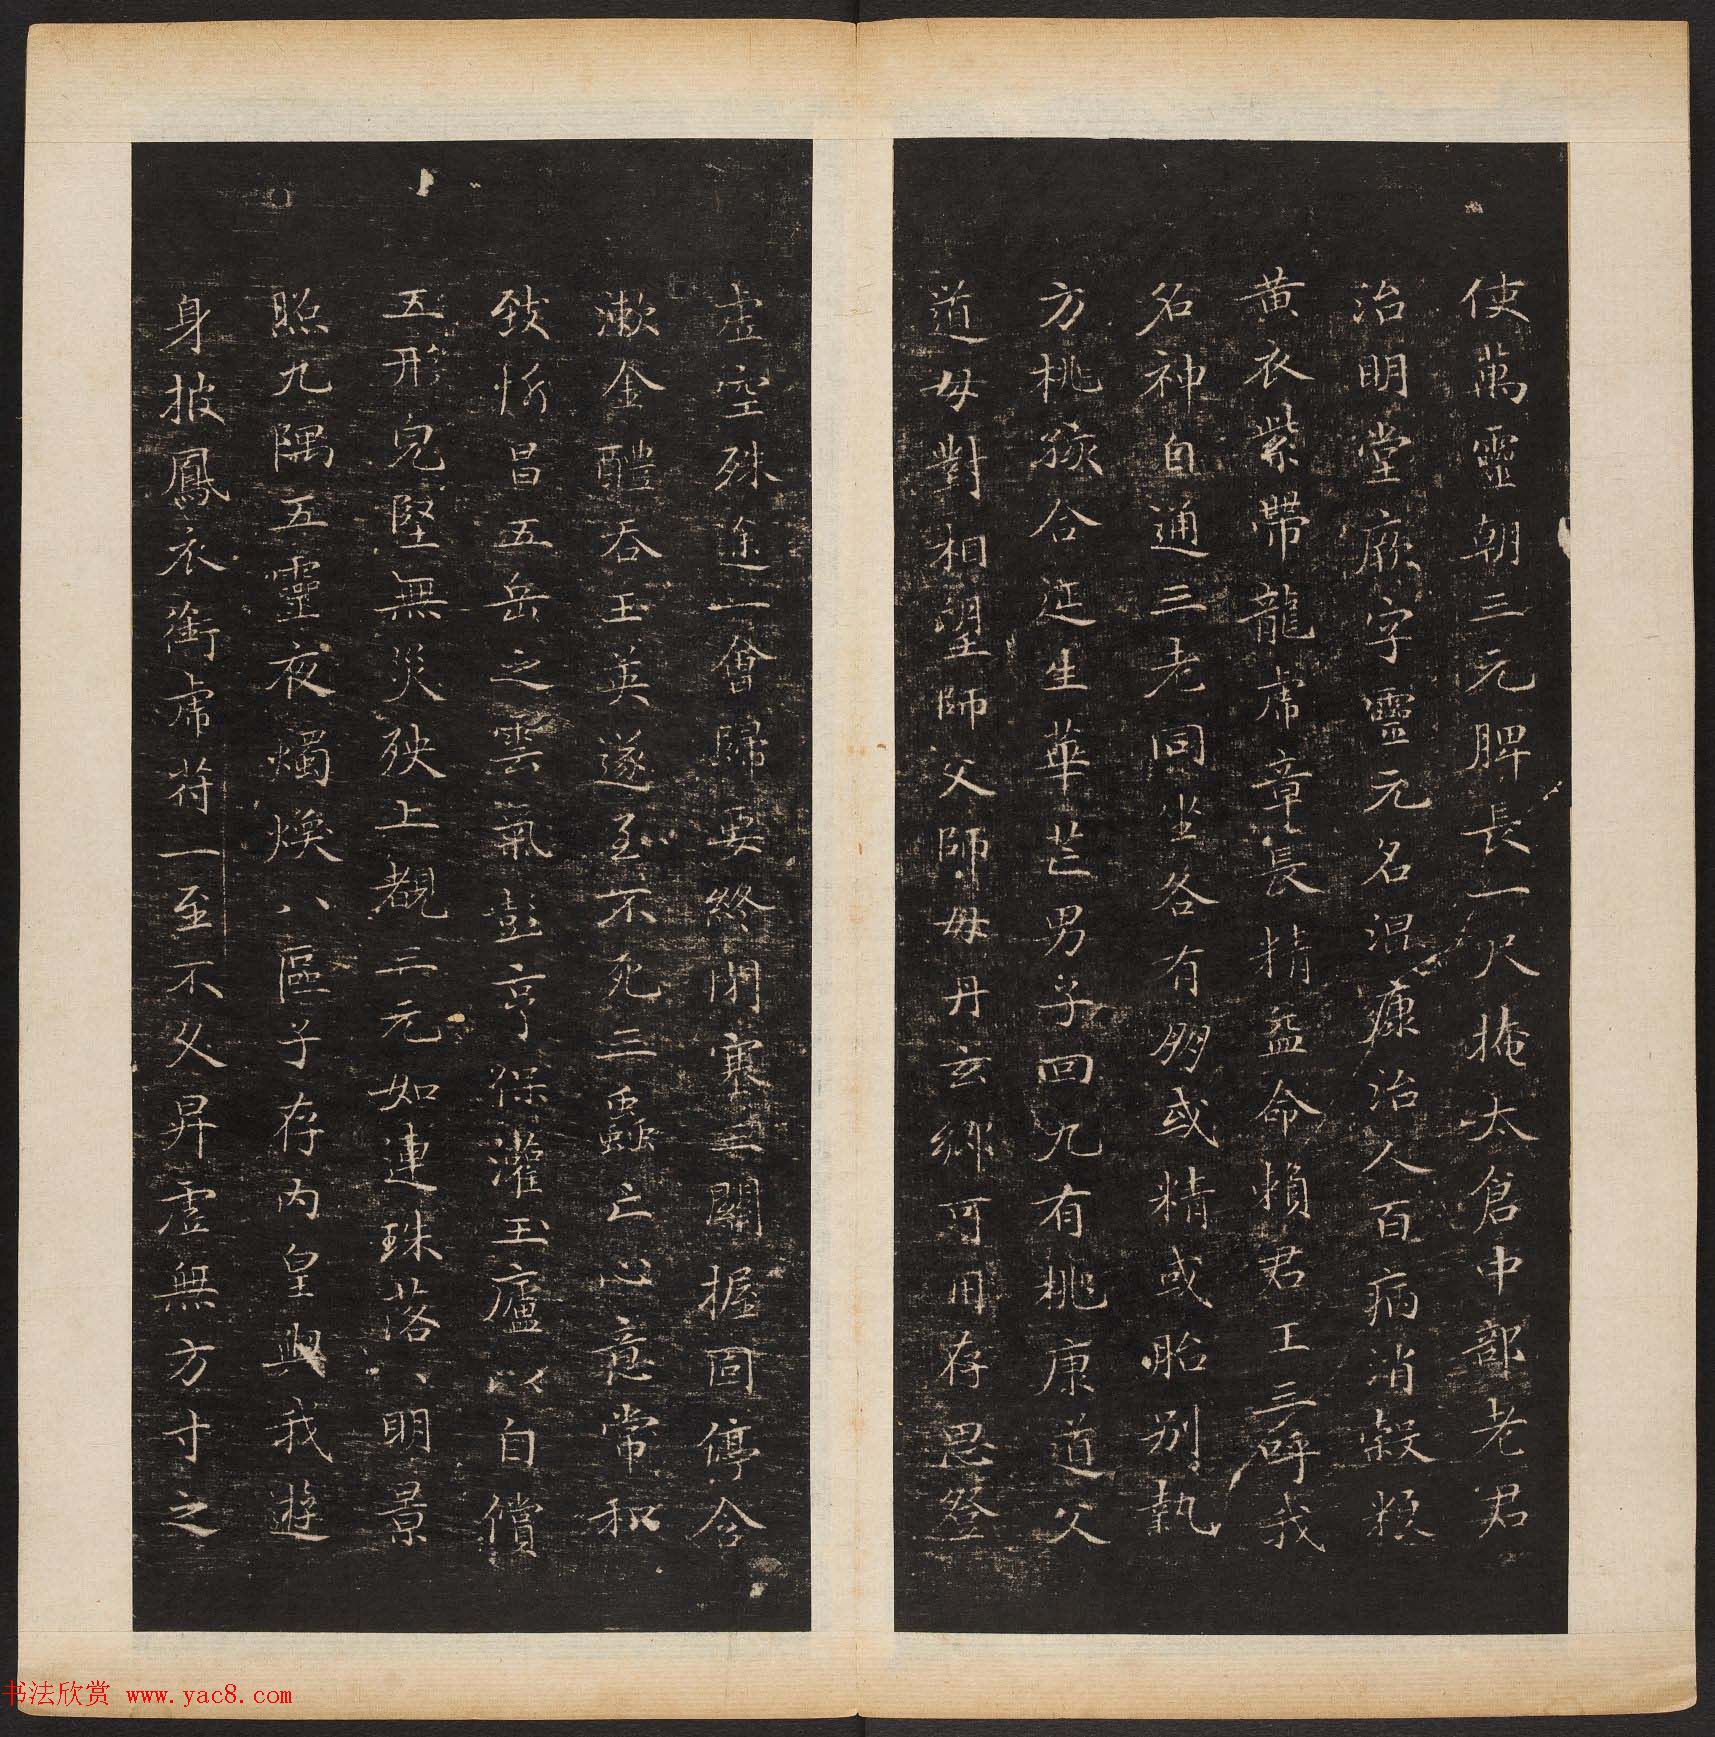 使萬靈朝三元脾長一尺掩太倉中部老君
治明堂厥字靈元名混康治人百病消穀粮
黃衣紫帶龍虎章長精益命賴君王三呼我
名神自通三老同坐各有朋或精或胎別執
方桃孩合延生華芒男女回九有桃康道父
道母對相望師父師母丹玄鄉可用存思登
虛空殊途一會歸要終閉塞三關握固停含
漱金醴吞玉英遂至不死三蟲亡心意常和
致忻昌五岳之雲氣彭亨保灌玉廬以自償
五形完堅無災殃上覩三元如連珠落落明景
照九隅五靈夜燭煥八區子存內皇與我遊
身披鳳衣銜虎符一至不久昇虛無方寸之
书法欣赏 www.yac8.com